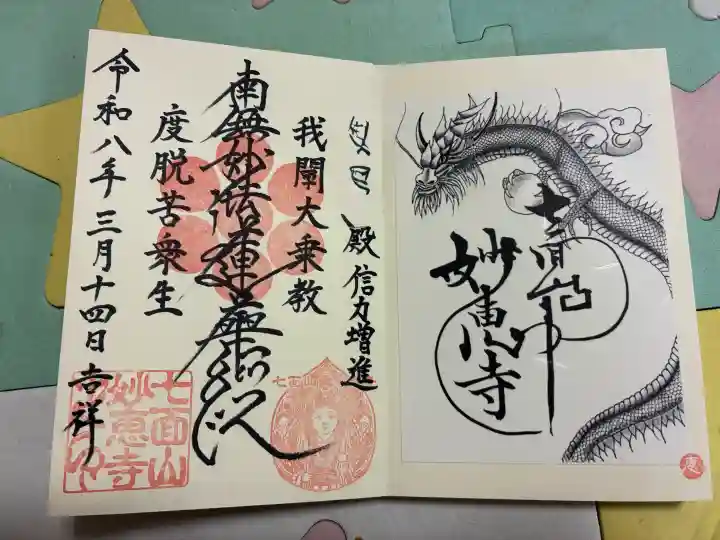 妙恵寺
恵
殿 信力増進
我闡大乗教
南無妙法蓮華経
度脱苦衆生
令和八年三月十四日 吉祥
七面山
妙恵寺